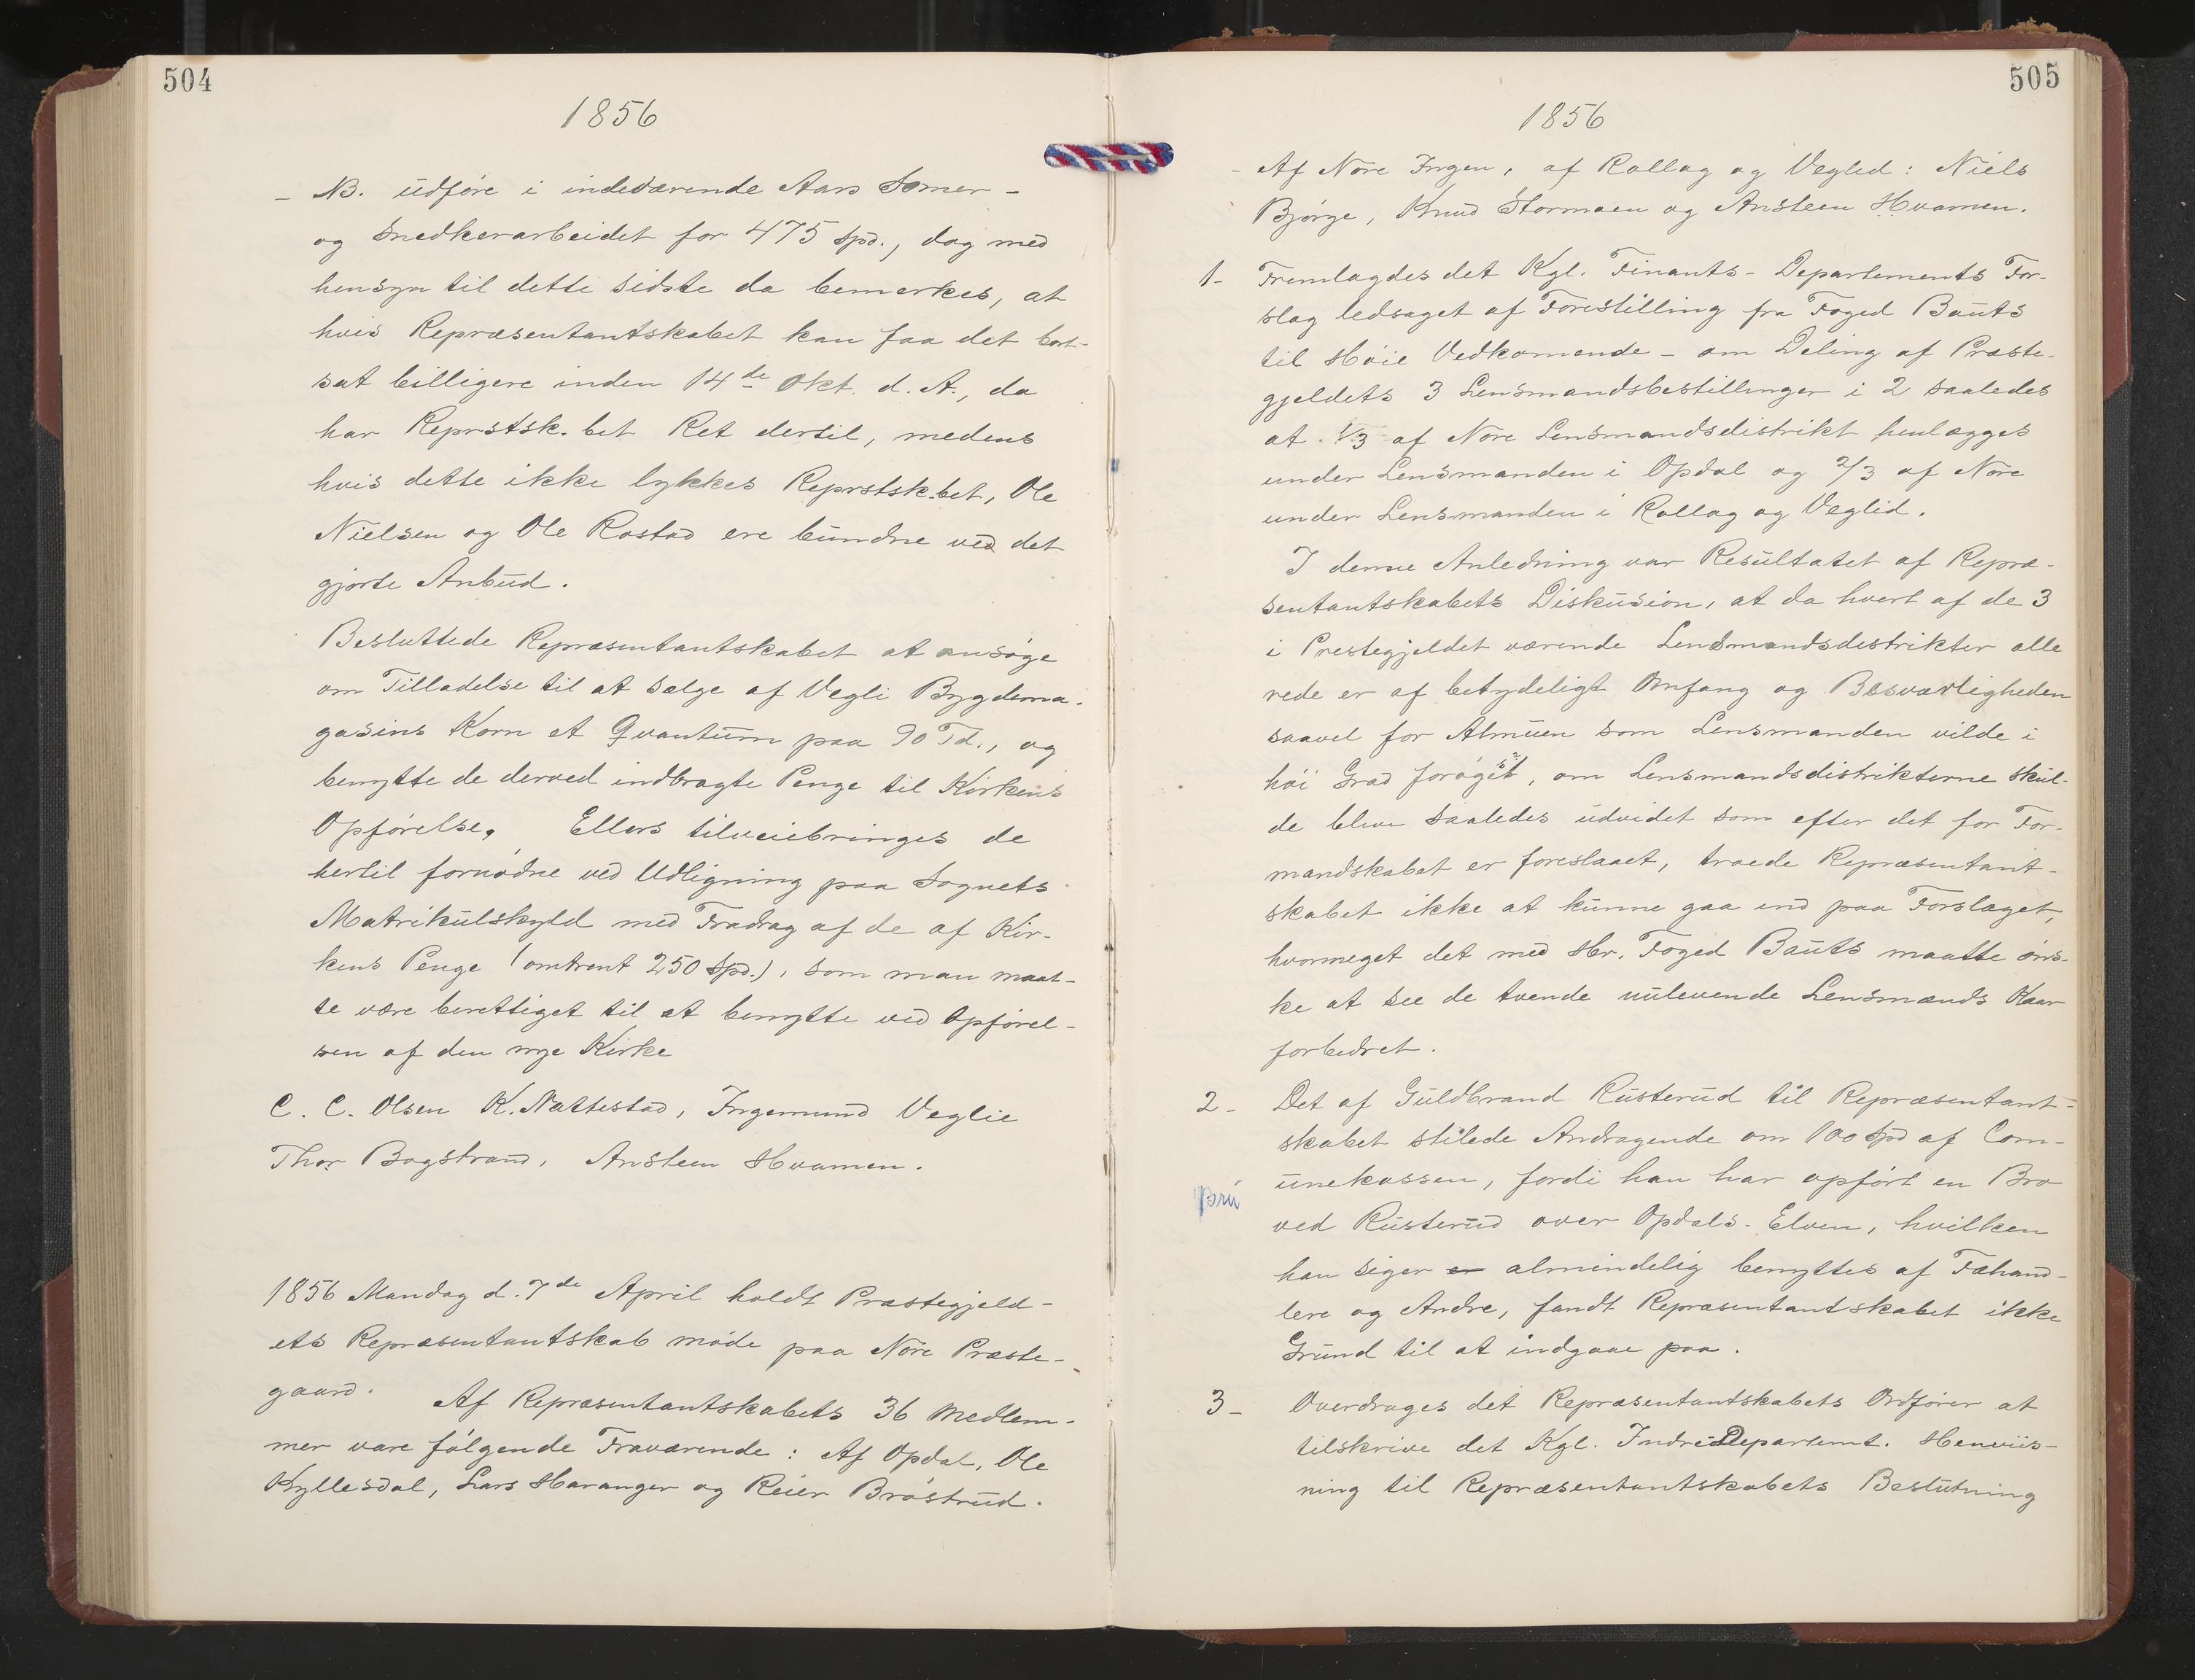 504
1856
- NB. udføre i indeværende Aars Somer-
og Snedkerarbeidet for 475 Spd., dog med
hensyn til dette sidste da bemærkes, at
hvis Repræsentantskabet kan faa det bort-
sat billigere inden 14de Okt. d. A., da
har Reprstsk.bet Ret dertil, medens
hvis dette ikke lykkes Reprstsk.bet, Ole
Nielsen og Ole Rostad ere bundne ved det
gjorte Anbud.
Besluttede Repræsentantskabet at ansøge
om Tilladelse til at sælge af Vegli Bygdema-
gasins Korn et Qvantum paa 90 Td., og
benytte de derved indbragte Penge til Kirkens
Opførelse, Ellers tilveiebringes de
hertil fornødne ved Udligning paa Sognets
Matrikulskyld med Fradrag af de af Kir-
kens Penge (omtrent 250 Spd.), som man maat-
te være berettiget til at benytte ved Opførel-
sen af den nye Kirke
C. C. Olsen K. Nattestad, Ingemund Veglie
Thor Bogstrand, Ansteen Hvamen.
1856 Mandag d. 7de April holdt Præstegjeld-
ets Repræsentantskab møde paa Nore Præste-
gaard. Af Repræsentantskabets 36 Medlem-
mer vare følgende Fraværende: Af Opdal, Ole
Kyllesdal, Lars Haranger og Reier Brøstrud.
505
1856
- Af Nore Ingen, af Rollag og Vegled: Niels
Bjørge, Knud Stormoen og Ansteen Hvamen.
1- Fremlagdes det Kgl. Finants-Departements For-
slag ledsaget af Forestilling fra Foged Bauts
til Høie Vedkomende - om Deling af Præste-
gjeldets 3 Lensmandsbestillinger i 2 saaledes
at 1/3 af Nore Lensmandsdistrikt henlægges
under Lensmanden i Opdal og 2/3 af Nore
under Lensmanden i Rollag og Veglid.
I denne Anledning var Resultatet af Repræ-
sentantskabets Diskusion, at da hvert af de 3
i Prestegjeldet værende Lendsmandsdistrikter alle
rede er af betydeligt Omfang og Besværligheden
saavel for Almuen som Lensmanden vilde i
høi Grad forøgest, om Lensmandsdistrikterne skul-
de blive saaledes udvidet som efter det for For-
mandskabet er foreslaaet, troede Repræsentant-
skabet ikke at kunne gaa ind paa Forslaget,
hvormeget det med Hr. Foged Bauts maatte øns-
ke at see de tvende nulevende Lensmænds Kaar
forbedret.
2- Det af Guldbrand Rusterud til Repræsentant-
skabet stilede Andragende om 100 Spd af Com-
unekassen, fordi han har opført en Bro
pru
ved Rusterud over Opdals-Elven, hvilken
han siger er almindelig benyttes af Fæhand-
lere og Andre, fandt Repræsentantskabet ikke
Grund til at indgaae paa.
3- Overdroges det Repræsentantskabets Ordfører at
tilskrive det Kgl. IndreDepartemt. Henviis-
ning til Repræsentantskabets Beslutning